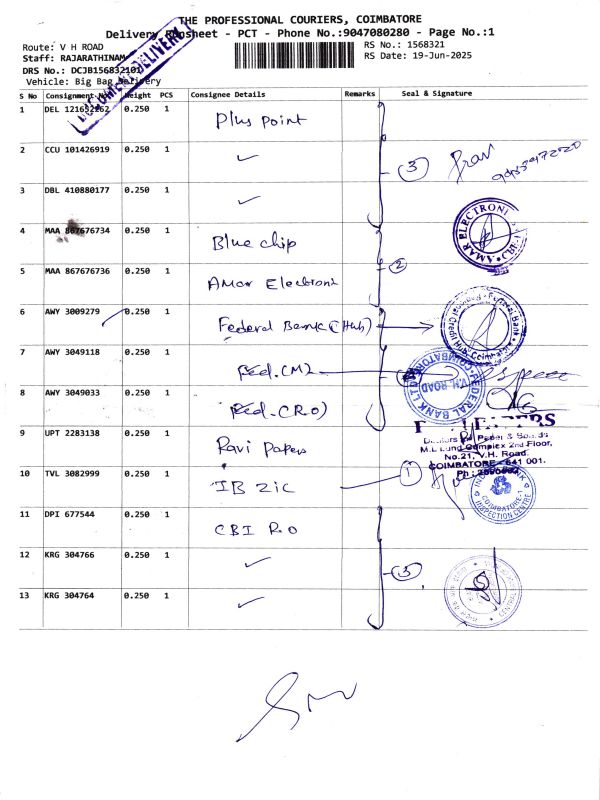 THE PROFESSIONAL COURIERS, COIMBATORE
Delivery Runsheet - PCT - Phone No.:9047080280 - Page No.:1
Route: V H ROAD
RS No.: 1568321
Staff: RAJARATHINAM
RS Date: 19-Jun-2025
DRS No.: DCJB156832101
Vehicle: Big Bag Delivery
S No Consignment No Weight PCS Consignee Details Remarks Seal & Signature
1 DEL 121652262 0.250 1 Plus point
2 CCU 101426919 0.250 1 ✓ 3
3 DBL 410880177 0.250 1 ✓
4 MAA 867676734 0.250 1 Blue chip
5 MAA 867676736 0.250 1 Amar Electroni 2
6 AWY 3009279 0.250 1 Federal Bank (Hub)
7 AWY 3049118 0.250 1 Fed. (M)
8 AWY 3049033 0.250 1 Fed. (R.O)
9 UPT 2283138 0.250 1 Ravi Papers
10 TVL 3082999 0.250 1 IB ZIC 1
11 DPI 677544 0.250 1 CBI R.O
12 KRG 304766 0.250 1 ✓ 3
13 KRG 304764 0.250 1 ✓
AMAR ELECTRONI
FEDERAL BANK LTD
V.H. ROAD
Dealers for Paper & Boards
2nd Floor,
No.21, V.H. Road,
COIMBATORE - 641 001.
COIMBATORE-1
INSPECTION CENTRE